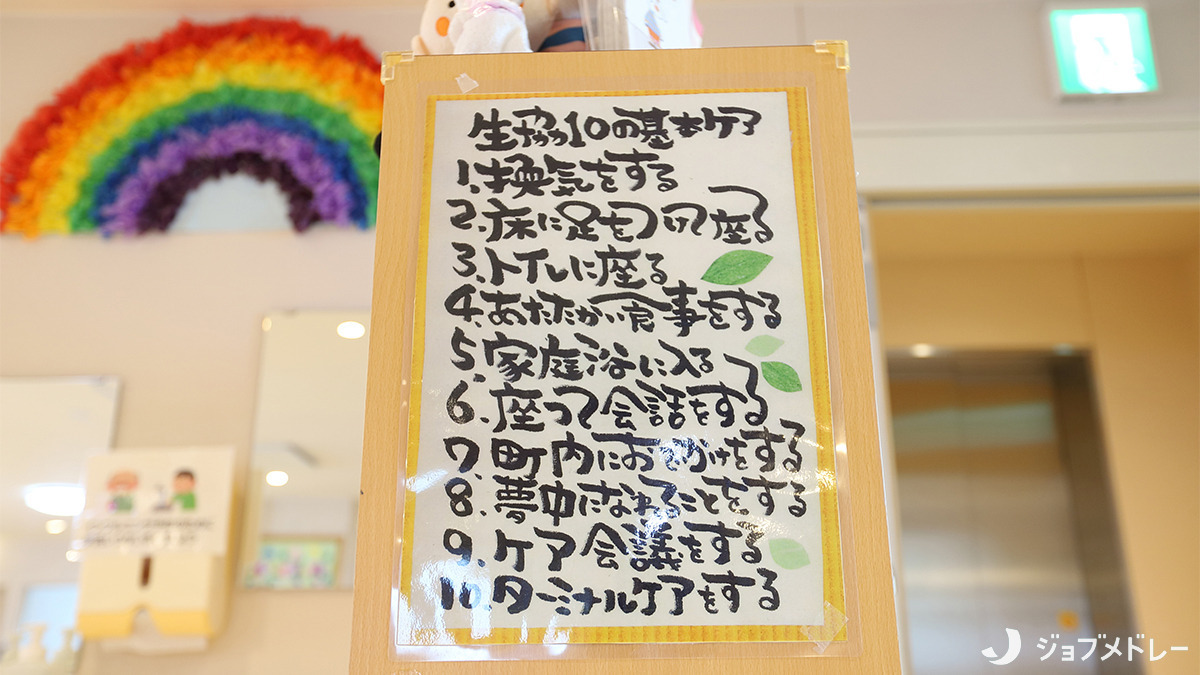 生協10の基本ケア
1.換気をする
2.床に足をつけて座る
3.トイレに座る
4.あたたかい食事をする
5.家庭浴に入る
6.座って会話をする
7.町内におでかけをする
8.夢中になれることをする
9.ケア会議をする
10.ターミナルケアをする
ジョブメドレー